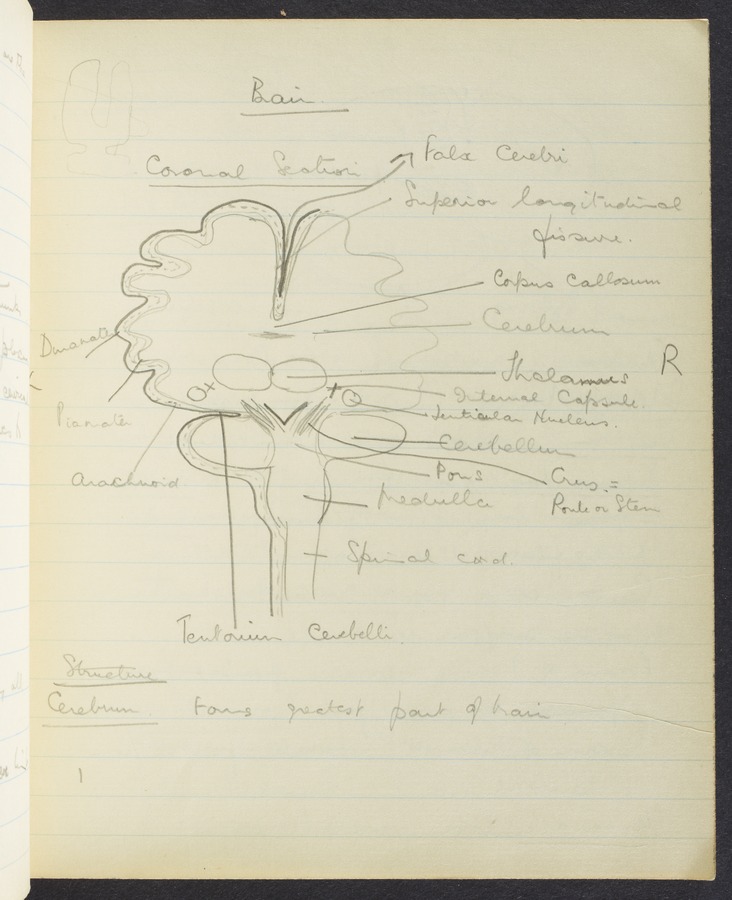 Brain
Coronal Section
Falx Cerebri
Superior longitudinal
fissure.
Corpus Callosum
Cerebrum
Thalamus
R
Internal Capsule.
Lenticular Nucleus.
Cerebellum
Pons
Crus =
Medulla
Stem
Spinal cord.
Duramater
Piamater
Arachnoid
Tentorium Cerebelli.
Structure
Cerebrum Forms greatest part of brain
1